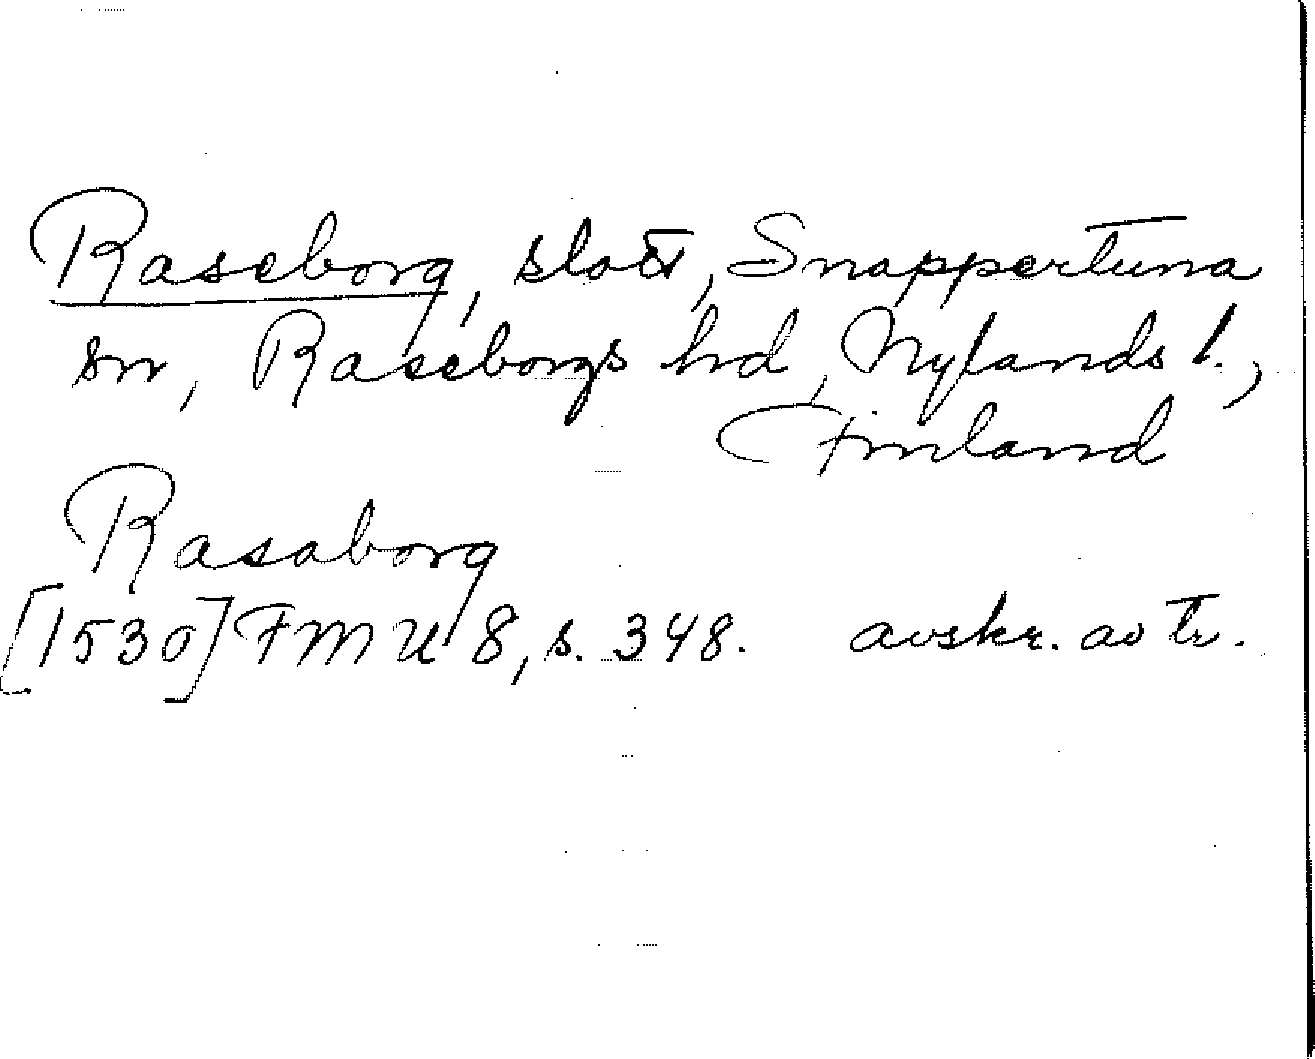 Raseborg, slott, Snappertuna
sn, Raseborgs hd, Nylands l.,
Finland
Rasaborg
[1530] FMU 8, s. 348. avskr. av tr.